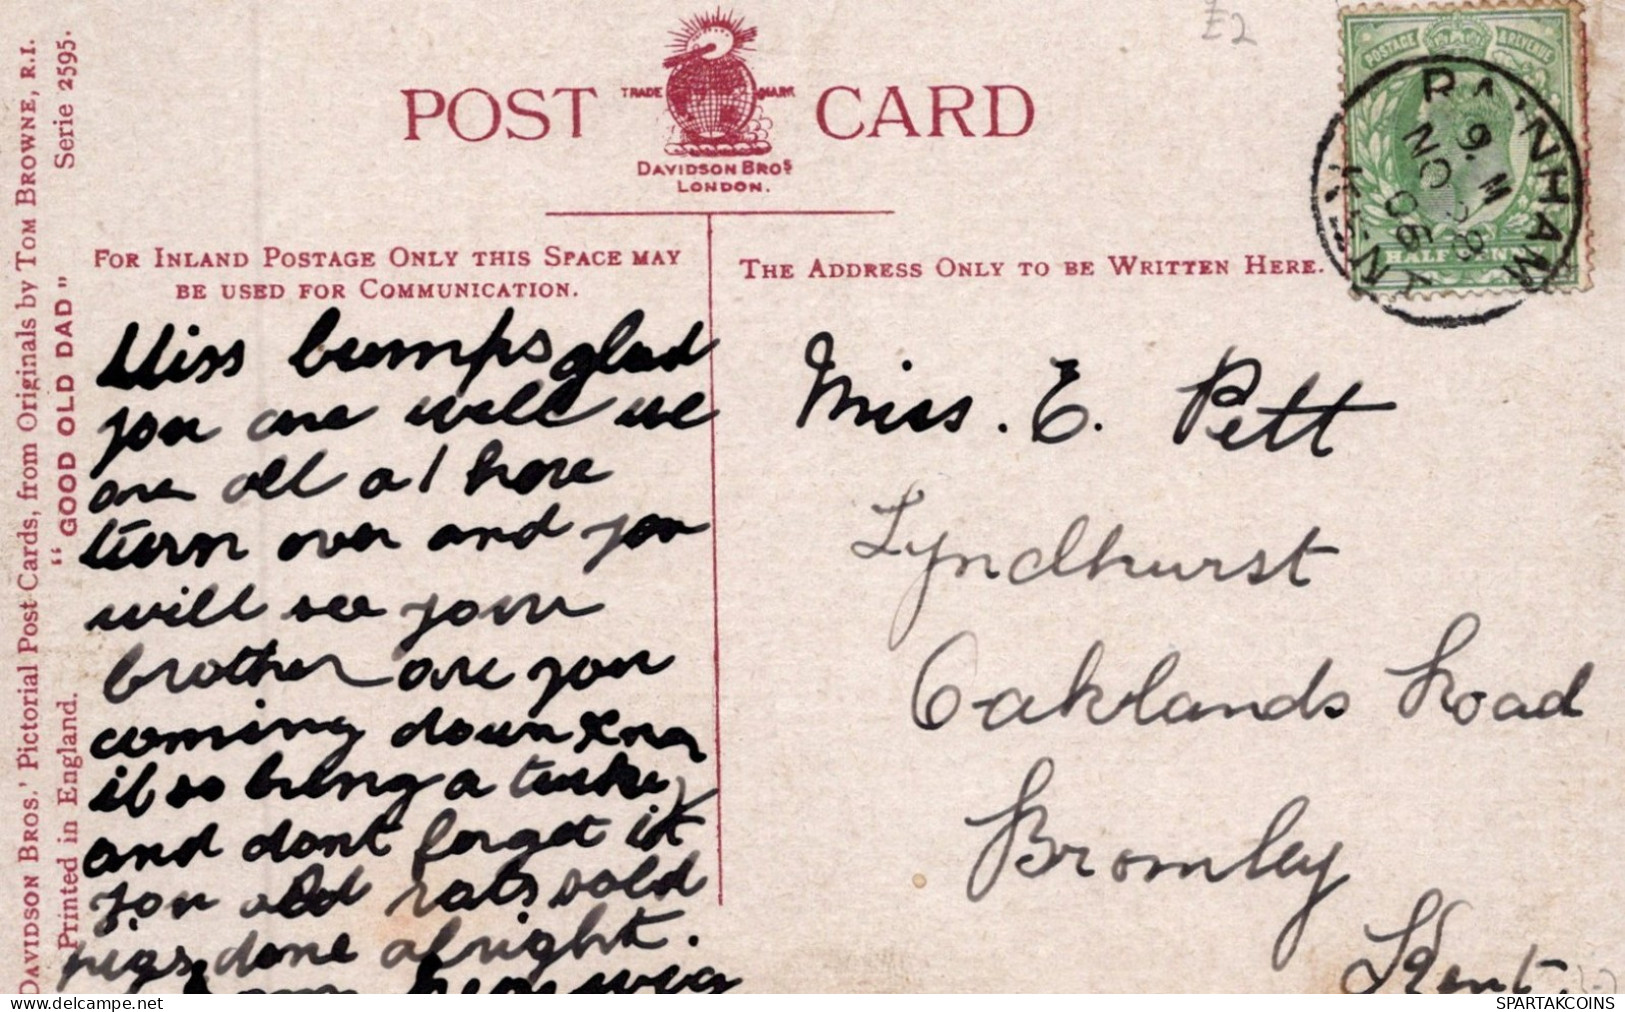 £2
POSTAGE & REVENUE
HALF PENNY
RAINHAM
KENT
NO 28
06
POST CARD
TRADE MARK
DAVIDSON BROS
LONDON.
DAVIDSON BROS.' Pictorial Post Cards, from Originals by TOM BROWNE, R.I.
Printed in England. "GOOD OLD DAD" Serie 2595.
FOR INLAND POSTAGE ONLY THIS SPACE MAY
BE USED FOR COMMUNICATION.
THE ADDRESS ONLY TO BE WRITTEN HERE.
Miss bumps glad
you are well we
are all a1 here
turn over and you
will see your
brother are you
coming down Xmas
if so bring a turkey
and dont forget it
you old rats sold
pigs done alright.
Miss. E. Pett
Lyndhurst
Oaklands Road
Bromley
Kent.
SPARTAKCOINS